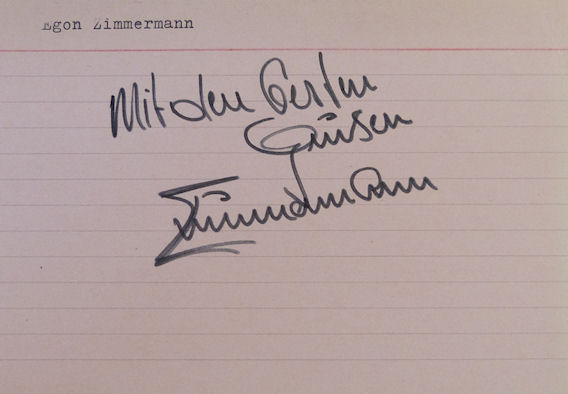 Egon Zimmermann
Mit den besten
Grüßen
Zimmermann